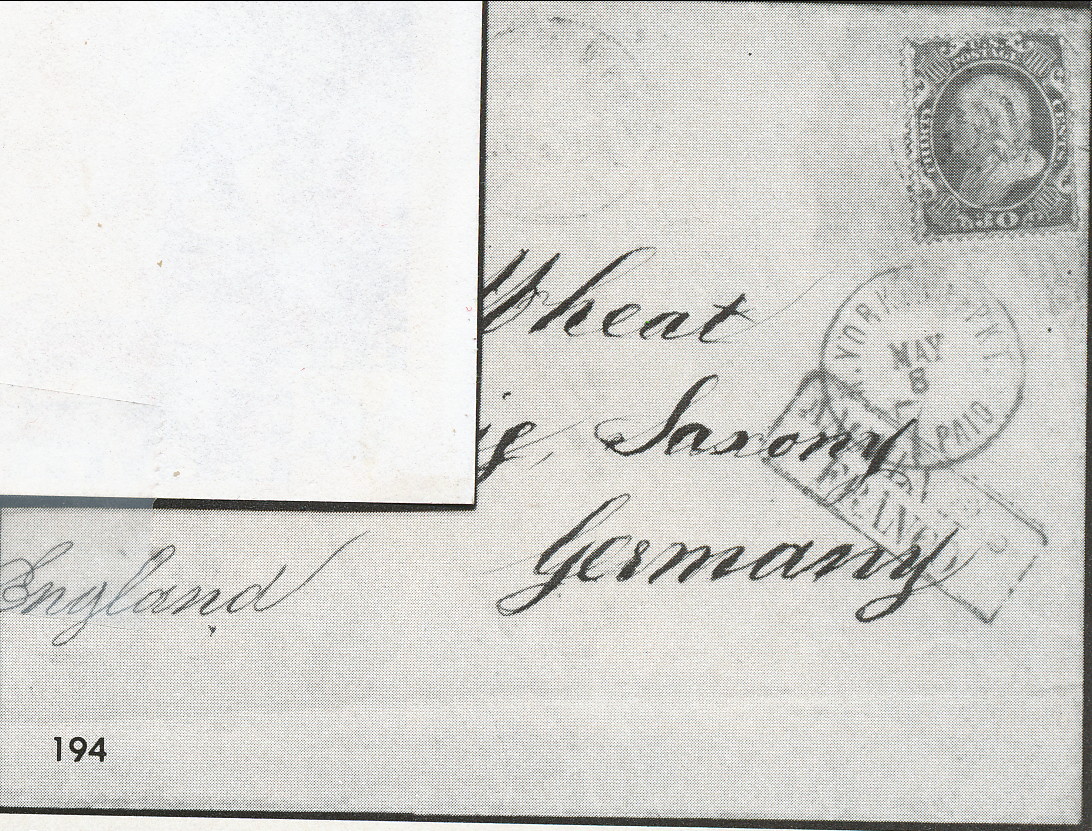 U.S. POSTAGE
THIRTY CENTS
30
Wheat
ig, Saxony
Germany
England
N. YORK PKT.
MAY
8
PAID
FRANCO
194